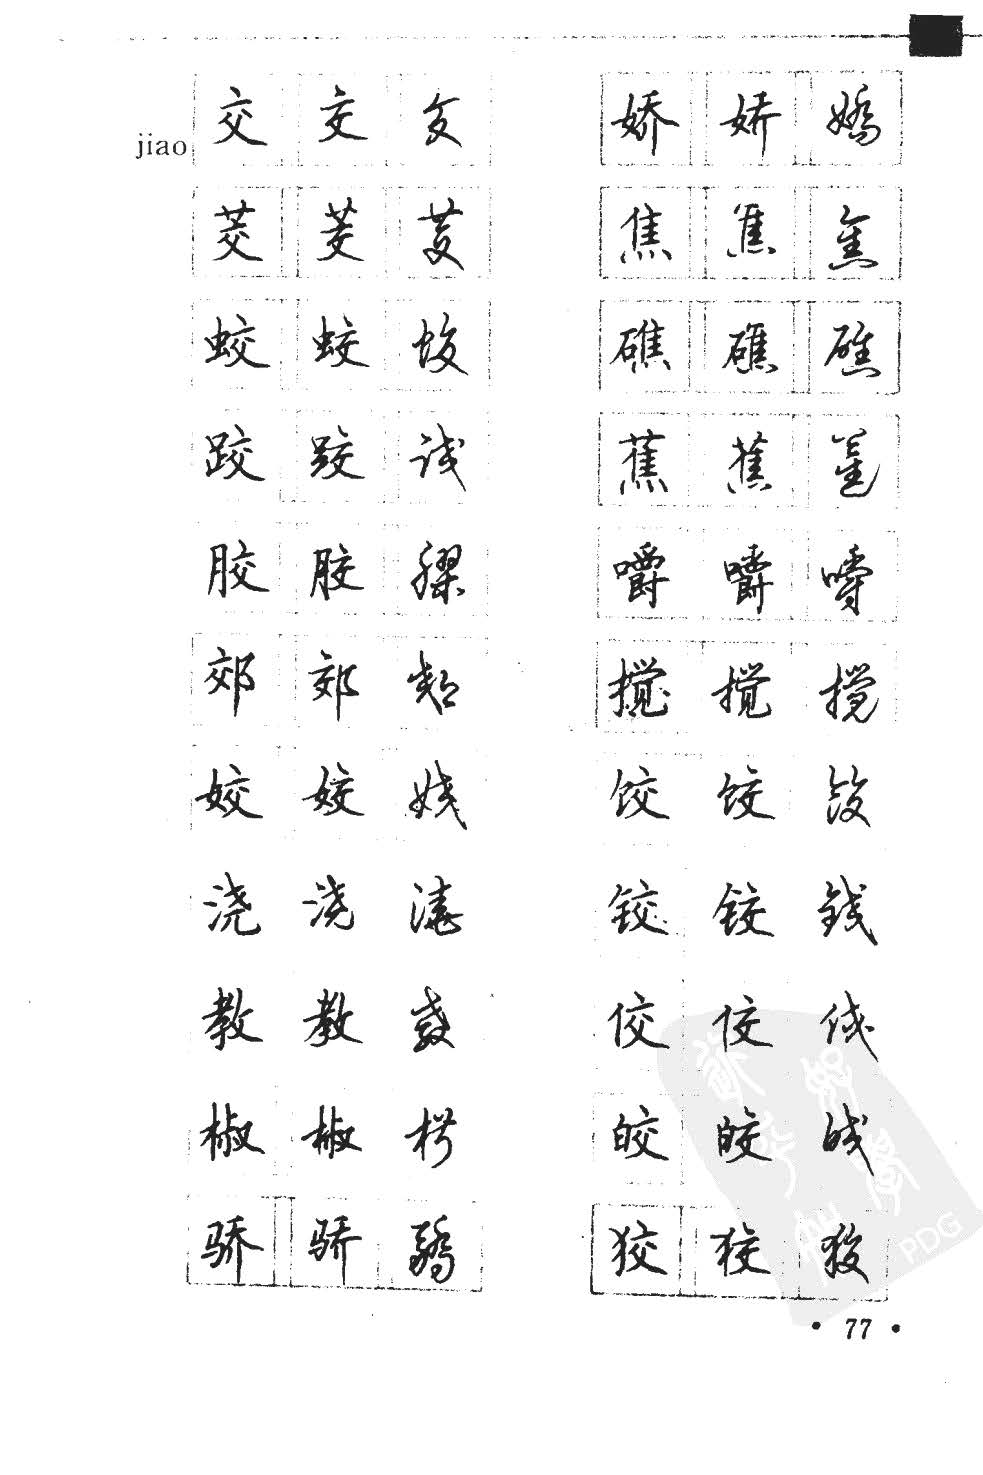 jiao
交 交 交
茭 茭 茭
蛟 蛟 蛟
跤 跤 跤
胶 胶 膠
郊 郊 郊
姣 姣 姣
浇 浇 澆
教 教 教
椒 椒 椒
骄 骄 驕
娇 娇 嬌
焦 焦 焦
礁 礁 礁
蕉 蕉 蕉
嚼 嚼 嚼
搅 搅 搅
饺 饺 饺
铰 铰 铰
佼 佼 佼
皎 皎 皎
狡 狡 狡
• 77 •
PDG